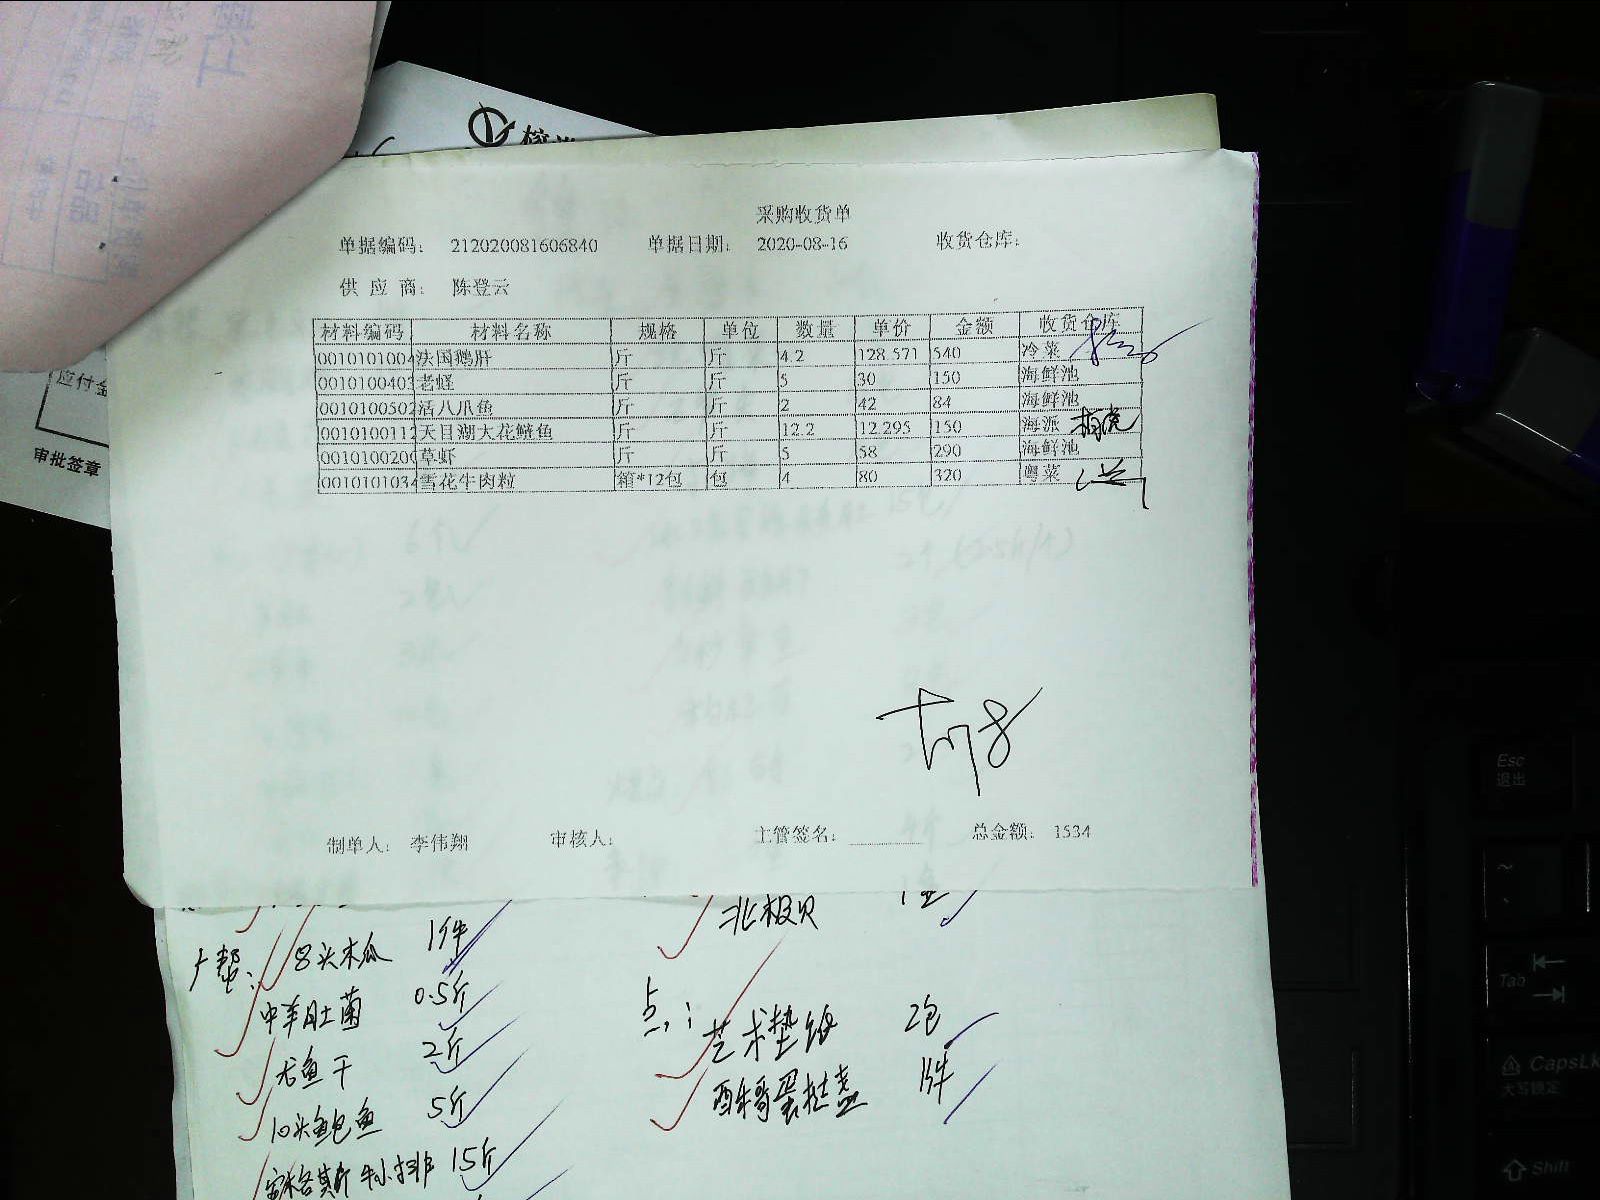 采购收货单
单据编码： 212020081606840 单据日期： 2020-08-16 收货仓库：
供 应 商： 陈登云
材料编码 材料名称 规格 单位 数量 单价 金额 收货仓库
0010101004 法国鹅肝 斤 斤 4.2 128.571 540 冷菜
0010100403 老蛏 斤 斤 5 30 150 海鲜池
0010100502 活八爪鱼 斤 斤 2 42 84 海鲜池
0010100112 天目湖大花鲢鱼 斤 斤 12.2 12.295 150 海派
0010100209 草虾 斤 斤 5 58 290 海鲜池
0010101034 雪花牛肉粒 箱*12包 包 4 80 320 粤菜
制单人： 李伟翔 审核人： 主管签名： 总金额： 1534
应付金
审批签章
北极贝 1盒
广帮： 8头木瓜 1件
中羊肚菌 0.5斤
尤鱼干 2斤
10头鲍鱼 5斤
牛小排 15斤
点： 艺术垫纸 2包
蛋挞盏 1件
Esc
退出
Tab
CapsLk
大写锁定
Shift